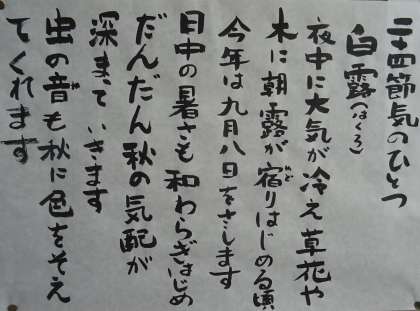 二十四節気のひとつ
白露(はくろ)
夜中に大気が冷え草花や
木に朝露が宿りはじめる頃
やど
今年は九月八日をさします
日中の暑さも和わらぎはじめ
だんだん秋の気配が
深まっていきます
虫の音も秋に色をそえ
てくれます